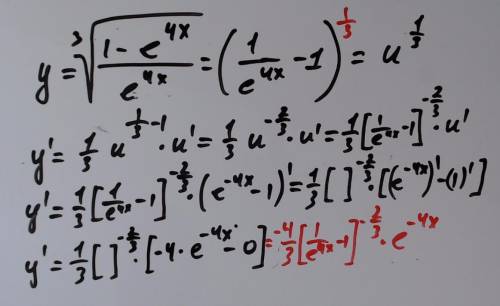 y = ∛((1 - e^{4x}) / e^{4x}) = (1/e^{4x} - 1)^{1/3} = u^{1/3}
y' = 1/3 u^{1/3 - 1} · u' = 1/3 u^{-2/3} · u' = 1/3 [1/e^{4x} - 1]^{-2/3} · u'
y' = 1/3 [1/e^{4x} - 1]^{-2/3} · (e^{-4x} - 1)' = 1/3 [ ]^{-2/3} · [(e^{-4x})' - (1)']
y' = 1/3 [ ]^{-2/3} · [-4 · e^{-4x} - 0] = -4/3 [1/e^{4x} - 1]^{-2/3} · e^{-4x}